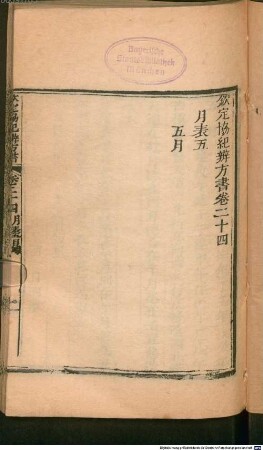 欽定協紀辨方書卷二十四
月表五
五月
欽定協紀辨方書
卷二十四 月表五
Bayerische
Staatsbibliothek
München